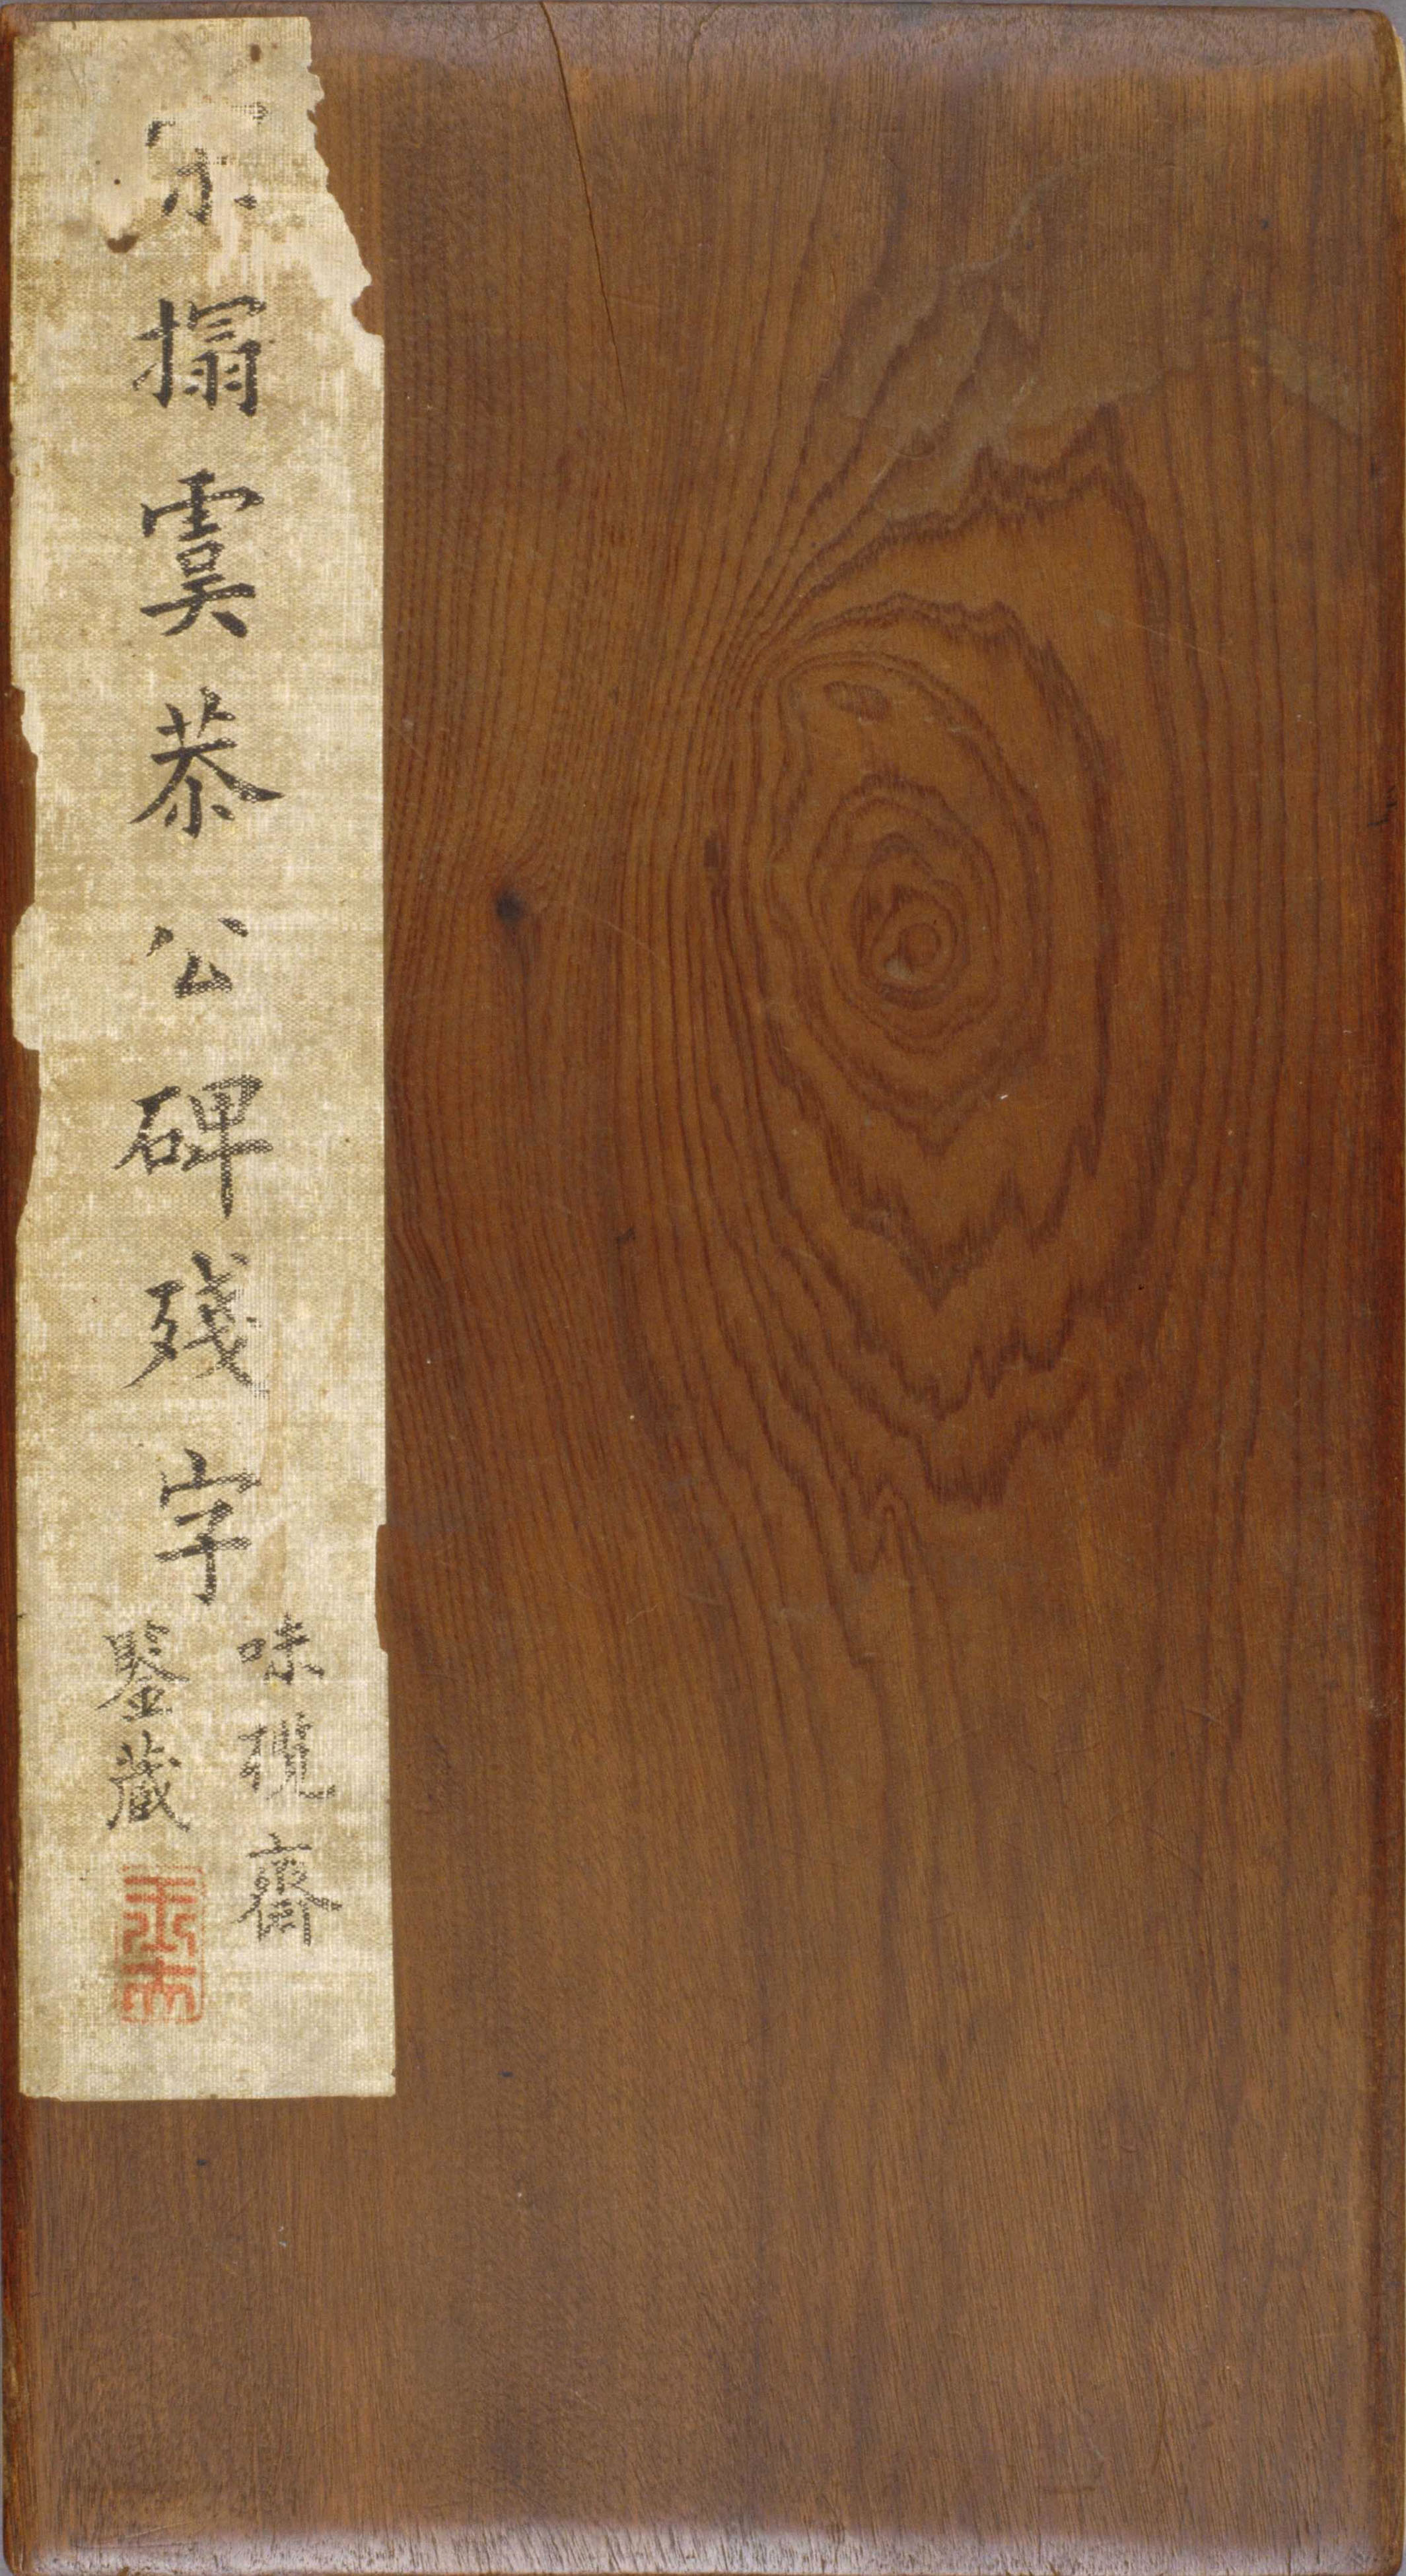 宋搨虞恭公碑殘字
味欖齋
鑒藏